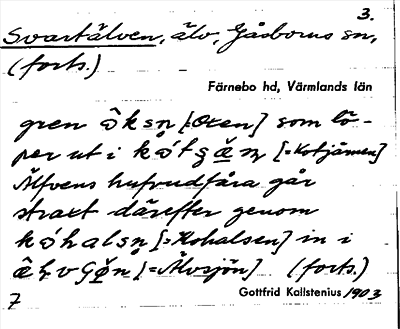 3.
Svartälven, älv, Gåsborns sn,
(forts.)
Färnebo hd, Värmlands län
gren ȯ̂ksn̥ [=Oxen] som lö-
per ut i kȯ́tʂæ̂n̥ [=Kotjärnen]
Älfvens hufvudfåra går
straxt därefter genom
kȯ́halsn̥ [=Kohalsen] in i
(forts.)
Gottfrid Kallstenius 1903
7